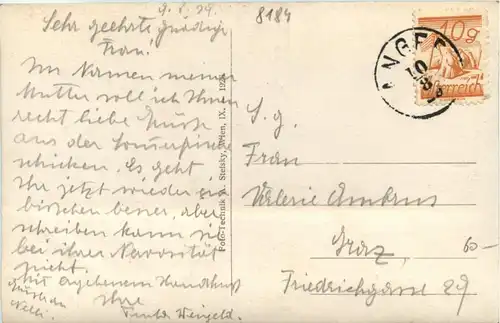 9. 8. 29.
Sehr geehrte gnädige
Frau!
Im Namen meiner
Mutter soll ich Ihnen
recht liebe Grüsse
aus der Sommerfrische
schicken. Es geht
Ihr jetzt wieder ein
bisschen besser, aber
schreiben kann sie
bei ihrer Nervosität
nicht.
Mit ergebenem Handkuss
Ihre
8184
10g
Österreich
Foto-Technik A. Stefsky, Wien, IX. 1928
S. g.
Frau
Valerie Ambrus
Graz,
Friedrichgasse 29
60-